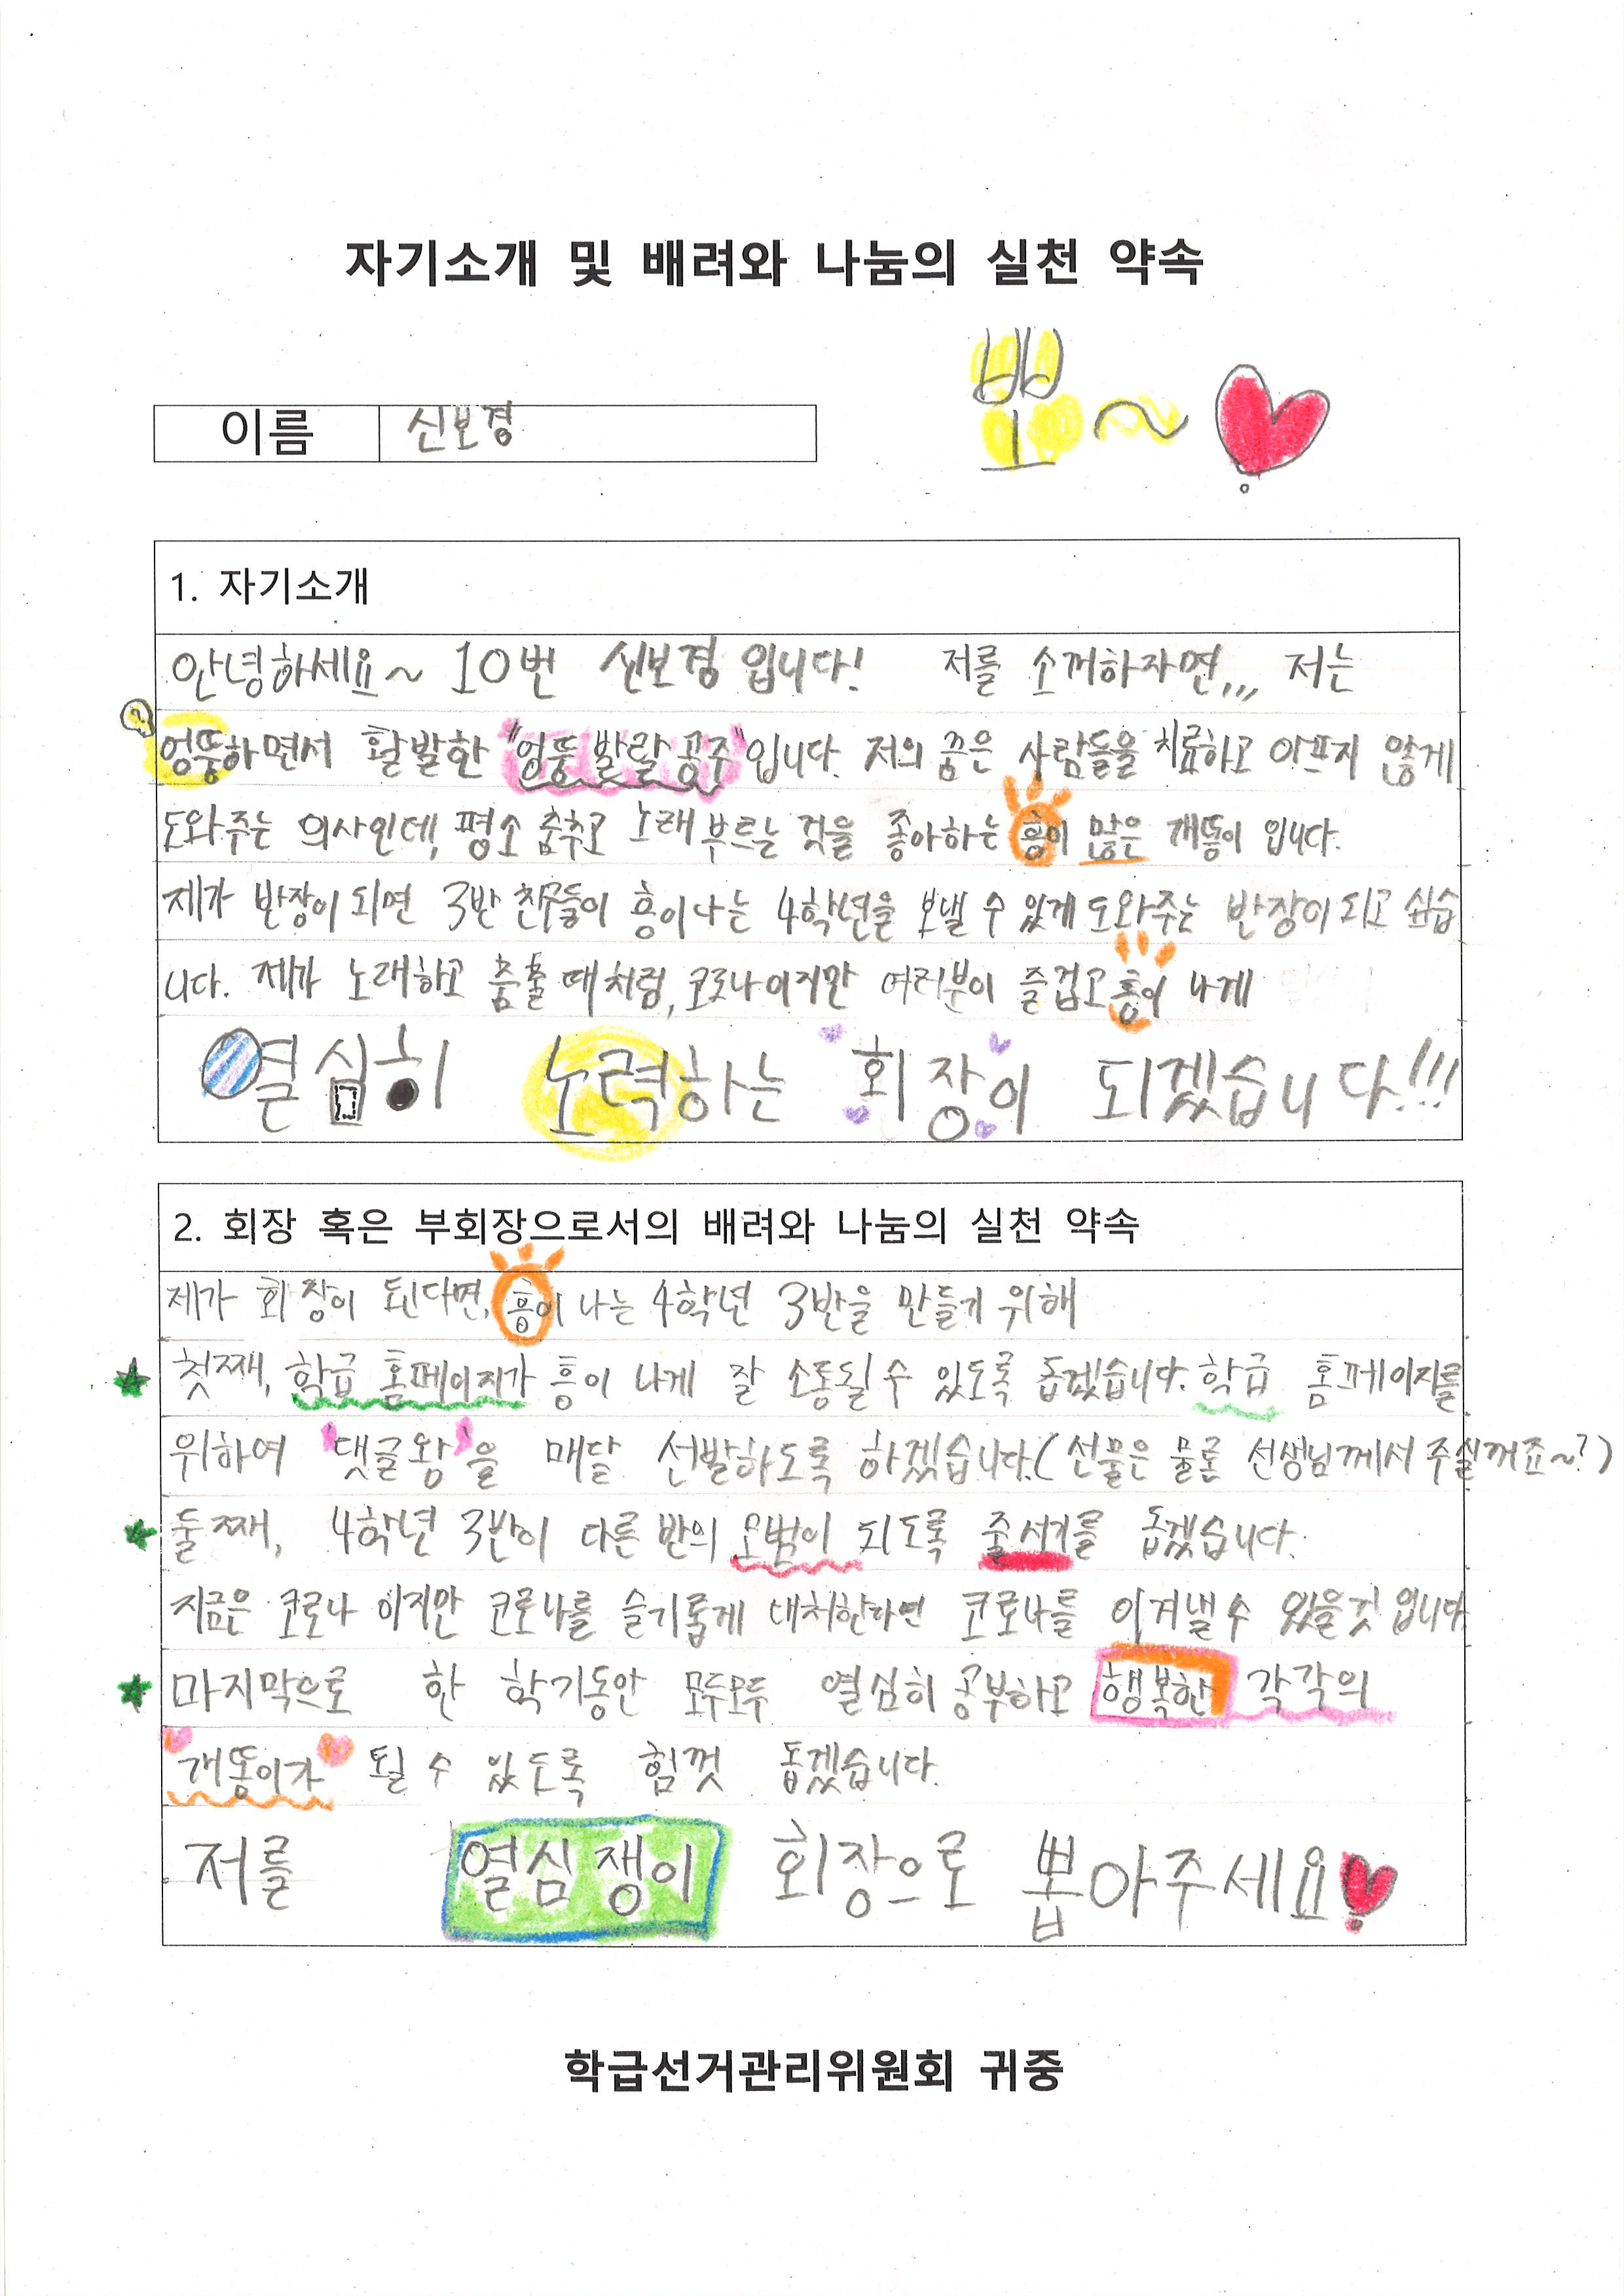 자기소개 및 배려와 나눔의 실천 약속
뽀~
이름 신보경
1. 자기소개
안녕하세요~ 10번 신보경 입니다! 저를 소꺼하자면,,, 저는
엉뚱하면서 활발한 "엉뚱 발랄 공주"입니다. 저의 꿈은 사람들을 치료하고 아프지 않게
도와주는 의사인데, 평소 춤추고 노래 부르는 것을 좋아하는 흥이 많은 개똥이 입니다.
제가 반장이 되면 3반 친구들이 흥이나는 4학년을 보낼 수 있게 도와주는 반장이 되고 싶습
니다. 제가 노래하고 춤출 때처럼, 코로나이지만 여러분이 즐겁고 흥이 나게
열심히 노력하는 회장이 되겠습니다!!!
2. 회장 혹은 부회장으로서의 배려와 나눔의 실천 약속
제가 회장이 된다면, 흥이 나는 4학년 3반을 만들기 위해
첫째, 학급 홈페이지가 흥이 나게 잘 소통될 수 있도록 돕겠습니다. 학급 홈페이지를
위하여 '댓글왕'을 매달 선발하도록 하겠습니다.(선물은 물론 선생님께서 주실꺼죠~?)
둘째, 4학년 3반이 다른 반의 모범이 되도록 줄서기를 돕겠습니다.
지금은 코로나 이지만 코로나를 슬기롭게 대처한다면 코로나를 이겨낼 수 있을것 입니다
마지막으로 한 학기동안 모두모두 열심히 공부하고 행복한 각각의
개똥이가 될 수 있도록 힘껏 돕겠습니다.
저를 열심쟁이 회장으로 뽑아주세요
학급선거관리위원회 귀중